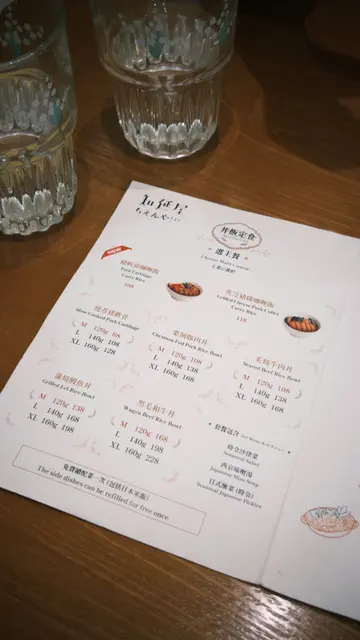 知延屋
ちえんや
丼飯定食
選主餐
Choose Main Course
主菜の選択
NEW
Pork Cartilage
Curry Rice
108
Grilled Cheese Pork Cutlet
Curry Rice
118
Slow Cooked Pork Cartilage
M 120g 88
L 140g 108
XL 160g 128
栗飼豚肉丼
Chestnut Fed Pork Rice Bowl
M 120g 108
L 140g 138
XL 160g 168
炙燒牛肉丼
Seared Beef Rice Bowl
M 120g 108
L 140g 138
XL 160g 168
蒲燒鰻魚丼
Grilled Eel Rice Bowl
M 120g 138
L 140g 168
XL 160g 198
黑毛和牛丼
Wagyu Beef Rice Bowl
M 120g 168
L 140g 198
XL 160g 228
套餐包含 Set Menu
時令沙律菜
Seasonal Salad
西京味噌湯
Japanese Miso Soup
日式漬菜 (時令)
Seasonal Japanese Pickles
免費續配菜一次 (包括日本米飯)
The side dishes can be refilled for free once